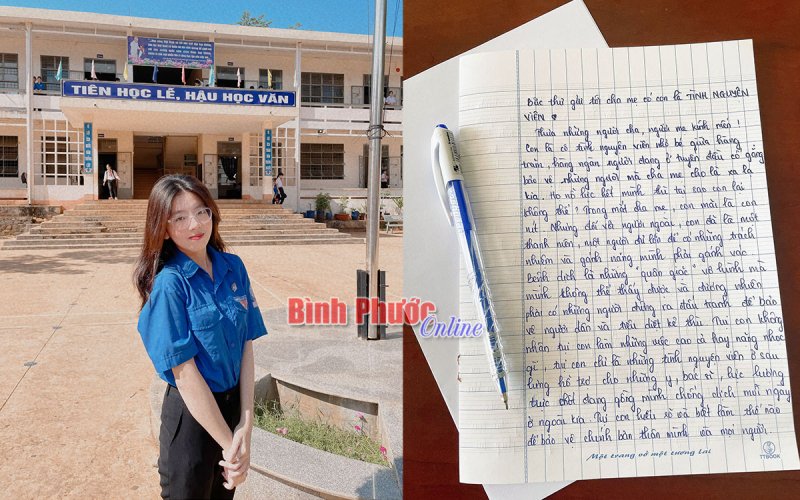 TIÊN HỌC LỄ, HẬU HỌC VĂN
Bình Phước
Online
Bức thư gửi tới cha mẹ có con là TÌNH NGUYỆN
VIÊN
Thưa những người cha, người mẹ kính mến!
Con là cô tình nguyện viên nhỏ bé giữa hàng
trăm, hàng ngàn người đang ở tuyến đầu cố gắng
bảo vệ những người mà cha mẹ cho là xa lạ
kia. Họ nỗ lực hết mình thì tại sao con lại
không thể? Trong mắt cha mẹ, con mãi là con
nít. Nhưng đối với người ngoài, con đã là một
thanh niên, một người đủ lớn để có những trách
nhiệm và gánh nặng mình phải gánh vác.
Bệnh dịch là những "quân giặc" vô hình mà
mình không thể thấy được và đương nhiên
phải có những người đứng ra đấu tranh để bảo
vệ người dân và tiêu diệt kẻ thù. Tụi con không
nhận tụi con làm những việc cao cả hay nặng nhọc
gì, tụi con chỉ là những tình nguyện viên ở sau
lưng hỗ trợ cho những y, bác sĩ, lực lượng
trực chốt đang gồng mình chống dịch mỗi ngày
ở ngoài kia. Tụi con hiểu rõ và biết làm thế nào
để bảo vệ chính bản thân mình và mọi người.
Một trang vở một tương lai
TTBOOK